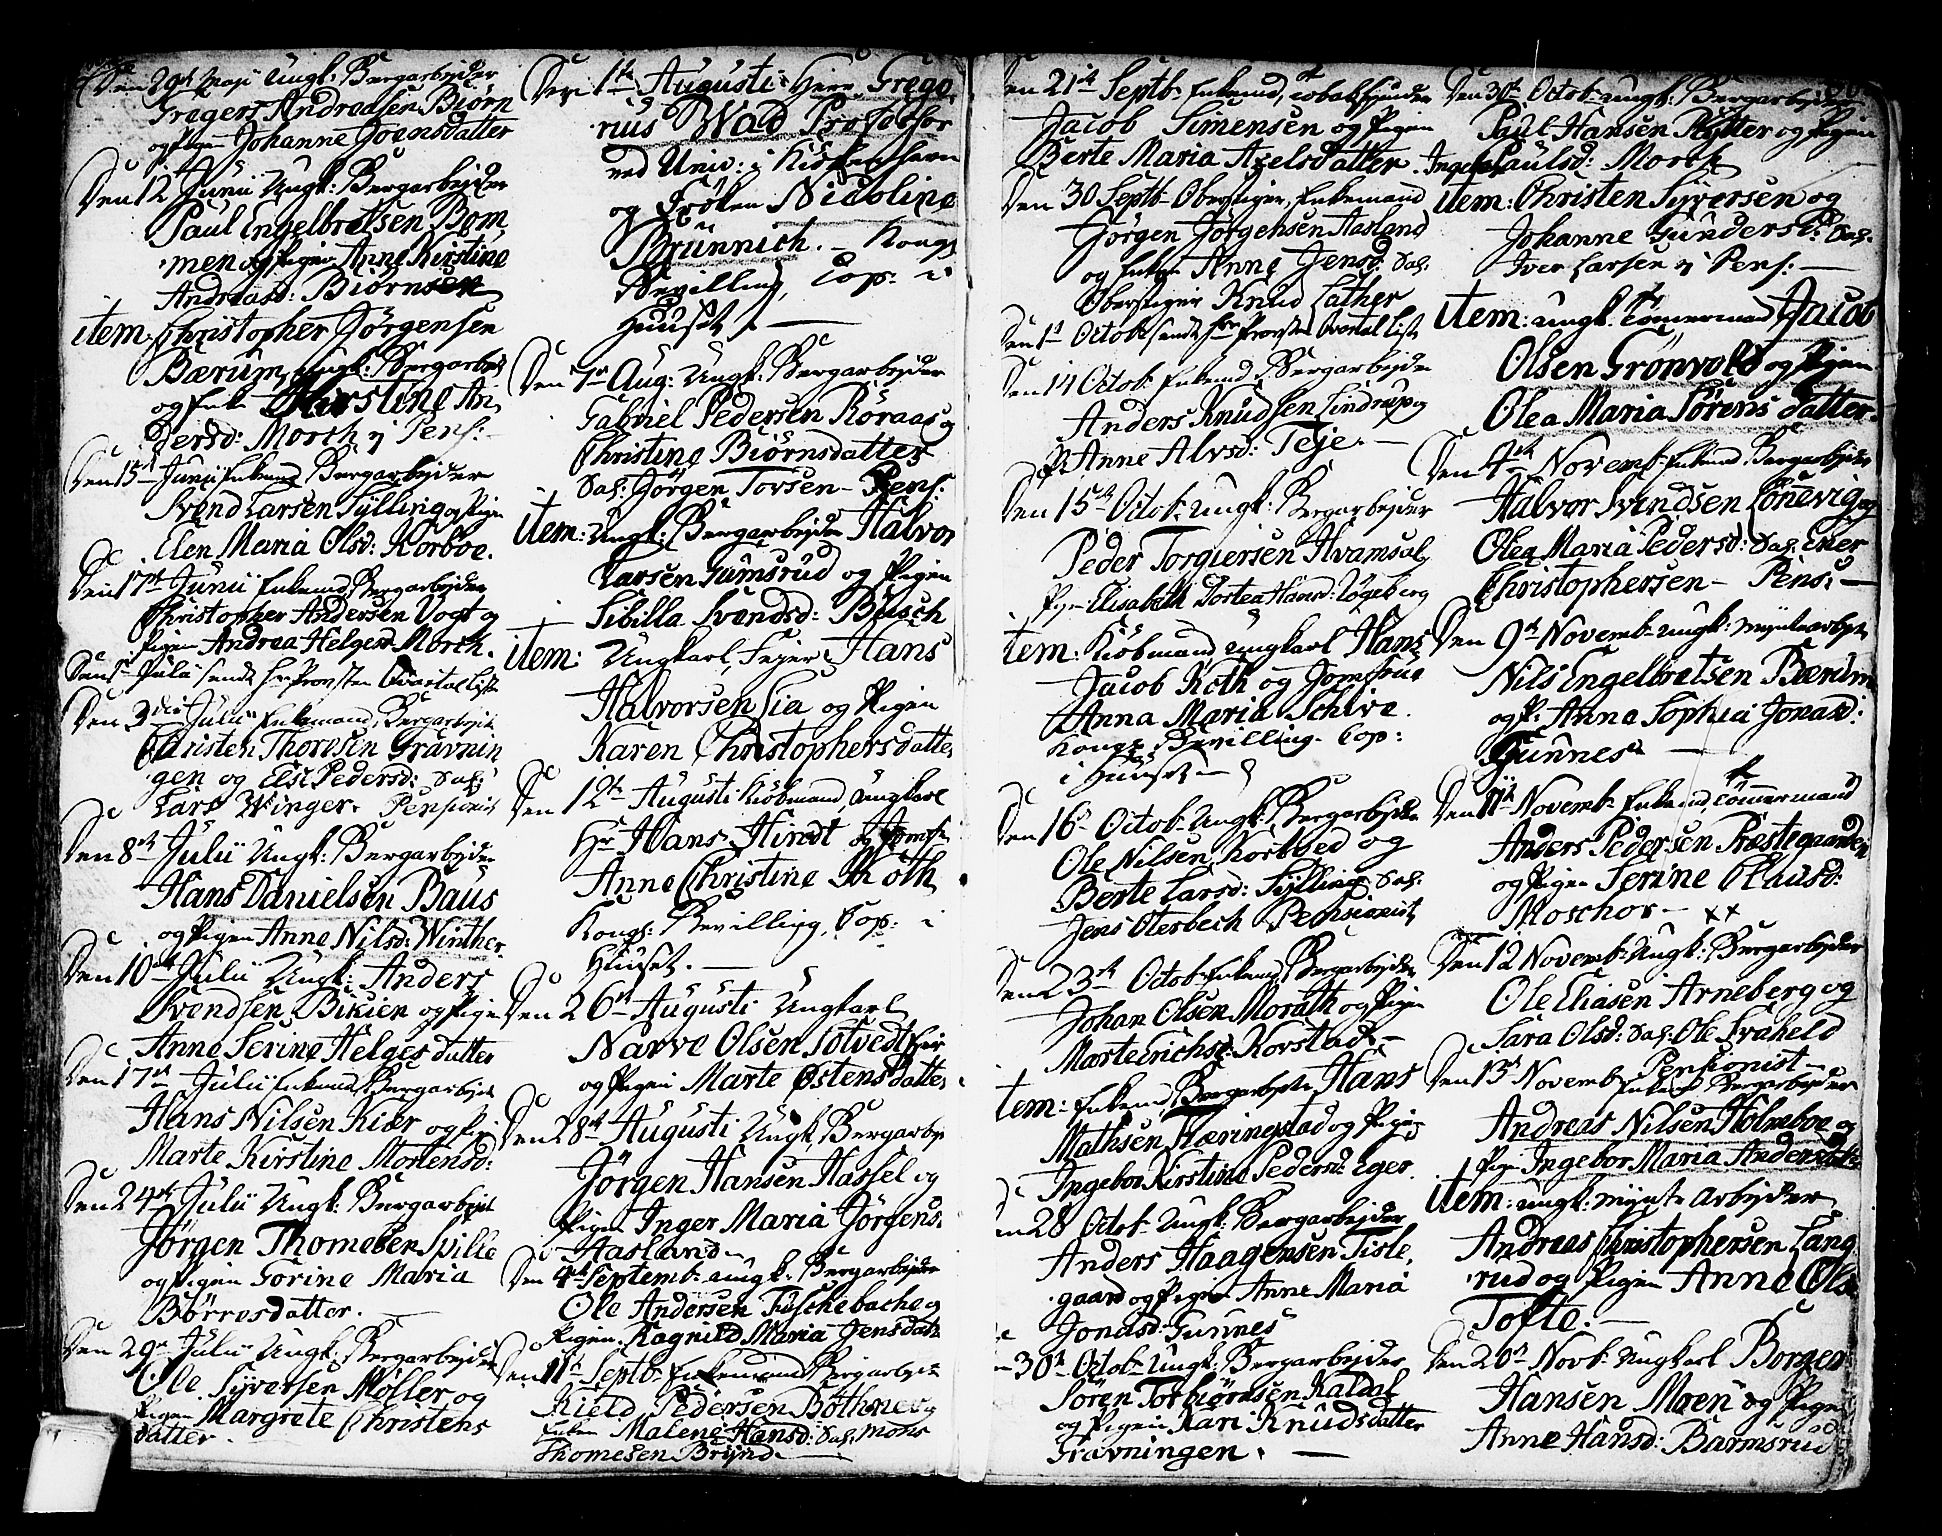 Den 29de Maji Ungk: Bergarbejder
Gregers Andreasen Biørn
og Pigen Johanne Joensdatter
Den 12 Junii Ungk: Bergarbejder
Paul Engelbretsen Bom,
men og Pigen Anne Kirstine
Andreasd: Biørnsen
item: Christopher Jørgensen
Bærum, ungk: Bergarbej
og Enke Kirstine An,
dersd: Morch ej Pens:
Den 15de Junii Enkemd Bergarbejder
Svend Larsen Sylling og Pigen
Elen Maria Olsd: Korboe.
Den 17de Junii Enkemd Bergarbejder
Christopher Andersen Vogt og
Pigen Andrea Helgesd: Morch.
Den 1ste Julii sendt Hr Provsten Qvartal Liste
Den 3die Julii Enkemand, Bergarbejd
Christen Thoresen Gravnin
gen og Else Pedersd: Sal:
Lars Winger. Pensionist
Den 8de Julii Ungk: Bergarbejder
Hans Danielsen Baus
og Pigen Anne Nilsd: Winther.
Den 10de Julii Ungk: Anders
Svendsen Bikien og Pigen
Anne Serine Helgesdatter
Den 17de Julii Enkemd Bergarbejd
Hans Nilsen Kiær og Pigen
Marte Kirstine Mortensd:
Den 24de Julii Ungk: Bergarbejd
Jørgen Thomesen Spille
og Pigen Gorine Maria
Børresdatter.
Den 29de Julii Ungk: Bergarbejder
Ole Syversen Møller og
Pigen Margrete Christens
datter.
Den 1ste Augusti Herr Grego,
rius Wad Professor
ved Univ: i Kiøbenhavn
og Frøken Nicoline
Brünnich. - Kongs
Bevilling, Cop: i
Huuset.
Den 7de Aug: Ungk: Bergarbejder
Gabriel Pedersen Röraas og
Christine Biørnsdatter
Sal: Jørgen Torsen - Pens:
item: Ungk: Bergarbejder Halvor
Larsen Gumsrud og Pigen
Sibilla Svendsd: Busch
item: Ungkarl, Fejer Hans
Halvorsen Lia og Pigen
Karen Christophersdatter
Den 12te Augusti Kiøbmand, Ungkarl
Hr Hans Hindt og Jomfr:
Anne Christine Roth
Kongs: Bevilling, Cop: i
Huuset.
Den 26de Augusti Ungkarl
Narve Olsen Solvedt
og Pigen Marte Østensdatter
Den 28de Augusti Ungk, Bergarbej
Jørgen Hansen Hassel og
Pigen Inger Maria Jørgensd:
Hasland
Den 4de Septemb: ungk: Bergarbejder
Ole Andersen Fuschebache og
Pigen. Ragnild Maria Jensdatt
Den 11te Septb: Enkemand Bergarbejd
Kield Pedersen Bothner og
Enken Malene Hansd: Sal: Mons
Thomesen Brynd
Den 21de Septb: Enkemd,
Jacob Simensen og Pigen
Berte Maria Axelsdatter.
Den 30 Septb: Oberstiger, Enkemand
Jørgen Jørgensen Hasland
og Enken Anne Jensd: Sal:
Oberstiger Knud Lather
Den 1st Octob: sendt Hr Provsten Qvartal Liste
Den 14 Octob: Enkemd Bergarbejder
Anders Knudsen Lindrup og
P: Anne Alvsd: Teje.
Den 15de Octob: ungk: Bergarbejder
Peder Torgiersen Hvamsal
Pigen Elisabeth Dortea Hansd: Løgeberg
item: Kiöbmand ungkarl Hans
Jacob Roth og Jomfrue
Anna Maria Schive.
Kongs Bevilling. Cop:
i Huuset
Den 16de Octob: Ungk: Bergarbejder
Ole Nilsen Korbøed og
Berte Larsd: Sylling Sal:
Jens Oterbech Pensionist
Den 23de Octob: Enkemd, Bergarbejder
Johan Olsen Morath og Pigen
Marte Erichsd: Korstad
item: Enkemd, Bergarbejder Hans
Mathsen Kæringstad og Pigen
Ingebor Kirstine Pedersd: Eger.
Den 28 Octob: Ungk: Bergarbejder
Anders Haagensen Tisle,
gaard og Pigen Anne Maria
Jonasd: Gunnes
Den 30te Octob: Ungk: Bergarbejder
Søren Torbiørnsen Kaldal
og Pigen Kari Knudsdatter
Gravningen.
Den 30te Octob: ungk: Bergarbejder
Paul Hansen Flytter og Pigen
Ingebor Paulsd: Morch
item: Christen Syversen og
Johanne Gundersd: Sal:
Iver Larsen ej Pens:
item: ungk: Tömmermand Jacob
Olsen Grönvold og Pigen
Olea Maria Sørens datter.
Den 4de Novemb: Enkemd Bergarbejder
Halvor Svendsen Lönnevig og
Olea Maria Pedersd: Sal: Ener
Christophersen - Pens:
Den 9de Novemb: ungk: Myntearbejd
Nils Engelbretsen Bærum
og P: Anna Sophia Jonasd:
Gunnes
Den 11te Novemb: Enkemd Tömmermand
Anders Pedersen Præstegaarden
og Pigen Serine Clausd:
Moschos - xx
Den 12 Novemb: Ungk: Bergarbejder
Ole Eliasen Arneberg og
Sara Olsd: Sal: Ole Svaheld
Pensionist
Den 13de Novemb: Enkemd Bergarbejder
Andreas Nilsen Holneboe og
Pigen Ingebor Maria Andersdatt
item: ungk: Mynte Arbejder
Andreas Christophersen Lang
rud og Pigen Anne Olsd
Tofte.
Den 20de Novb: Ungkarl Borger
Hansen Moen og Pigen
Anne Hansd: Barmsrud